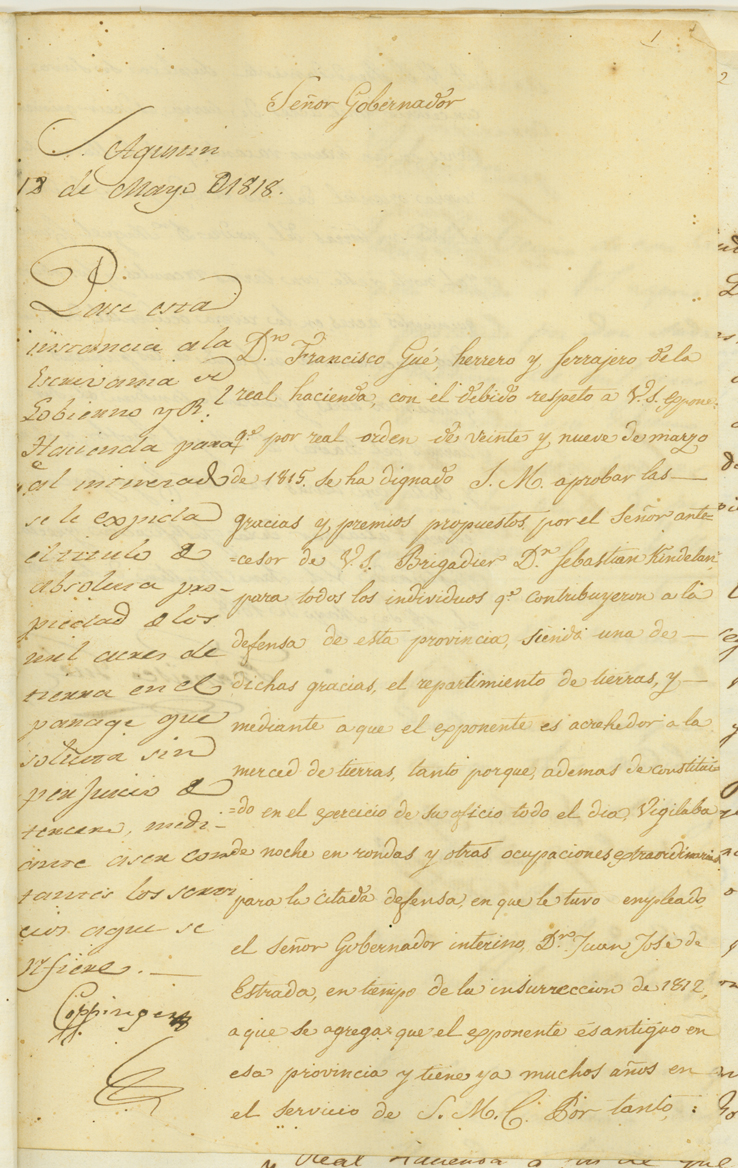 1
Señor Gobernador
S. Agustin
12 de Mayo D 1818.
Pase esta
instancia a la
Escrivania de
Gobierno y R.
Hacienda para
q.e al interesado
se le expida
el titulo de
absoluta pro-
piedad de los
mil acres de
tierra en el
parage que
solicita sin
perjuicio de
tercero, medi-
ante a ser cons
tantes los servi
cios a que se
refiere.
Coppinger
D.n Francisco Gué, herrero y serrajero de la
real hacienda, con el debido respeto a V.S. expone:
q.e por real orden de veinte y nueve de marzo
de 1815. se ha dignado S. M. aprobar las
gracias y premios propuestos por el Señor ante=
=cesor de V.S. Brigadier D.n Sebastian Kindelan
para todos los individuos q.e contribuyeron a la
defensa de esta provincia, siendo una de
dichas gracias, el repartimiento de tierras, y
mediante a que el exponente es acrehedor a la
merced de tierras, tanto porque, ademas de constitui
=do en el exercicio de su oficio todo el dia, Vigilaba
de noche en rondas y otras ocupaciones extraordinarias
para la citada defensa, en que le tuvo empleado
el señor Gobernador interino, D.n Juan José de
Estrada, en tiempo de la insurreccion de 1812,
a que se agrega que el exponente es antiguo en
esa provincia y tiene ya muchos años en
el servicio de S. M. C. Por tanto,